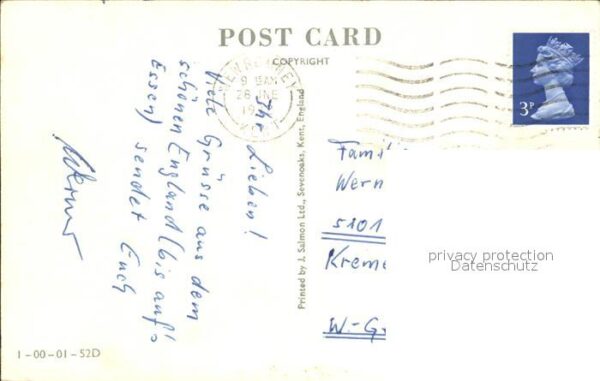 POST CARD
COPYRIGHT
9 15AM
28 JNE
19
KENT
3P
Ihr Lieben!
Viele Grüsse aus dem
schönen England (bis auf's
Essen) sendet Euch
Werner
Printed by J. Salmon Ltd., Sevenoaks, Kent, England
Famil
Wern
5101
Kreme
W-G
privacy protection
Datenschutz
1-00-01-52D